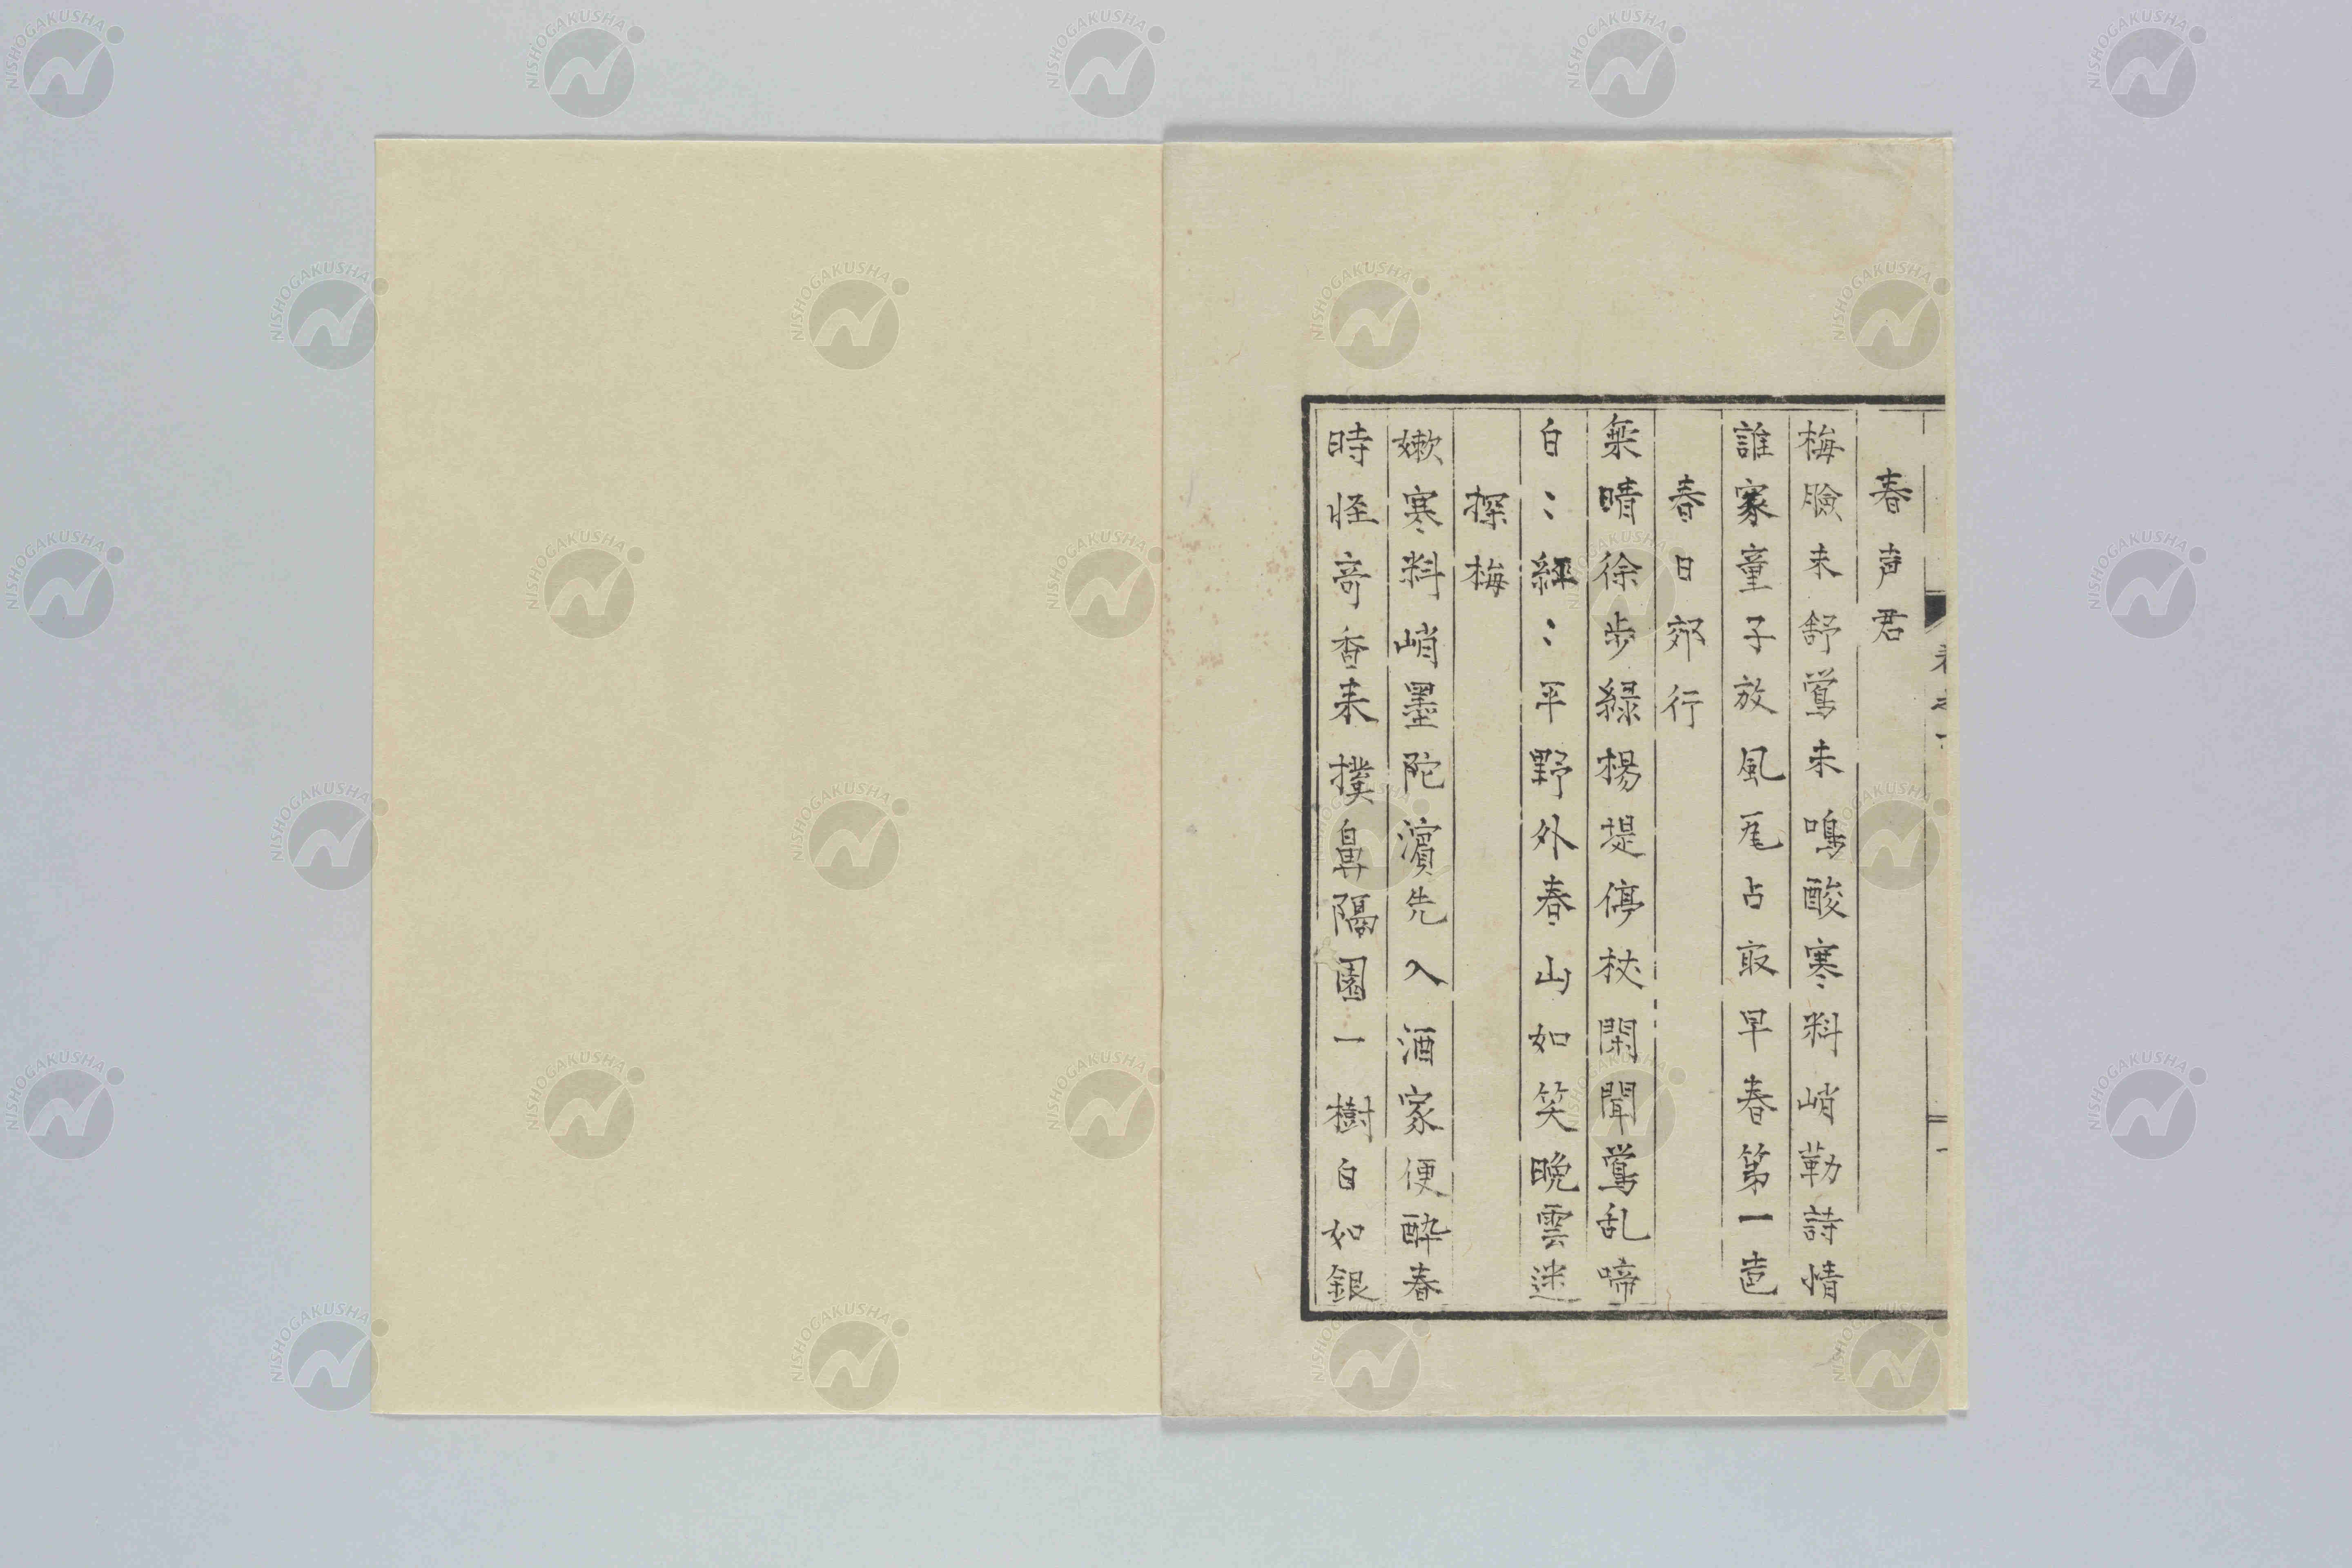 春声君
梅臉未舒鶯未鳴酸寒料峭勒詩情
誰家童子放風鳶占取早春第一芭
春日郊行
乗晴徐步緑楊堤停杖閑聞鶯乱啼
白〻紅〻平野外春山如笑晩雲迷
探梅
嫩寒料峭墨陀濵先入酒家便酔春
時怪奇香来撲鼻隔園一樹白如銀